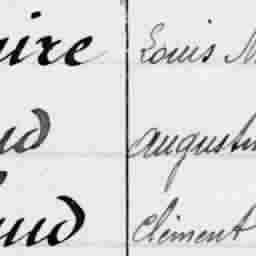 aire Louis M
ud augustin
aud Clément